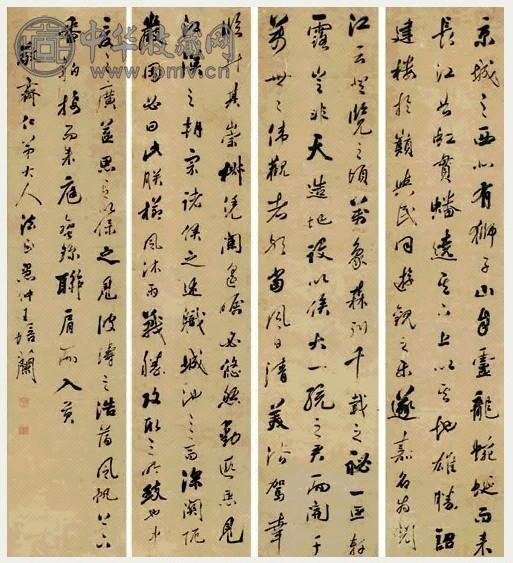 中华收藏网
www.pmv.cn
京城之西北有獅子山自盧龍蜿蜒而来
長江如虹貫蟠遶其下上以其地雄勝詔
建樓於巔與民同遊觀之樂遂嘉名為閱
江云登覽之頃萬象森列千載之秘一旦軒
露豈非天造地設以俟大一統之君而開千
萬世之偉觀者歟當風日清美法駕幸
臨升其崇椒凭闌遥矚必悠然動遐思見
江漢之朝宗諸侯之述職城池之高深關阨
嚴固必曰此朕櫛風沐雨戰勝攻取之所致也中
夏之廣益思以保之見波濤之浩蕩風帆上下
番舶接而来庭蠻琛聯肩而入貢
齋仁弟大人法正愚仲王培蘭